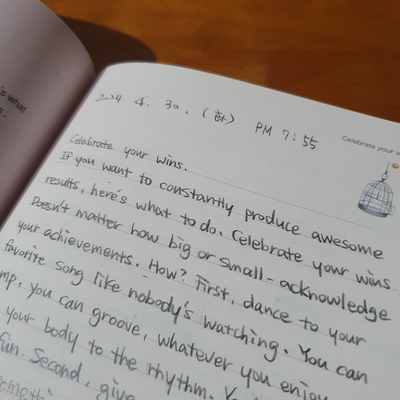 's what
2024 4. 30. (화) PM 7:55
Celebrate your w
Celebrate your wins.
If you want to constantly produce awesome
results, here's what to do. Celebrate your wins.
Doesn't matter how big or small - acknowledge
your achievements. How? First, dance to your
favorite song like nobody's watching. You can
mp, you can groove, whatever you enjoy
your body to the rhythm.
fun. Second, give